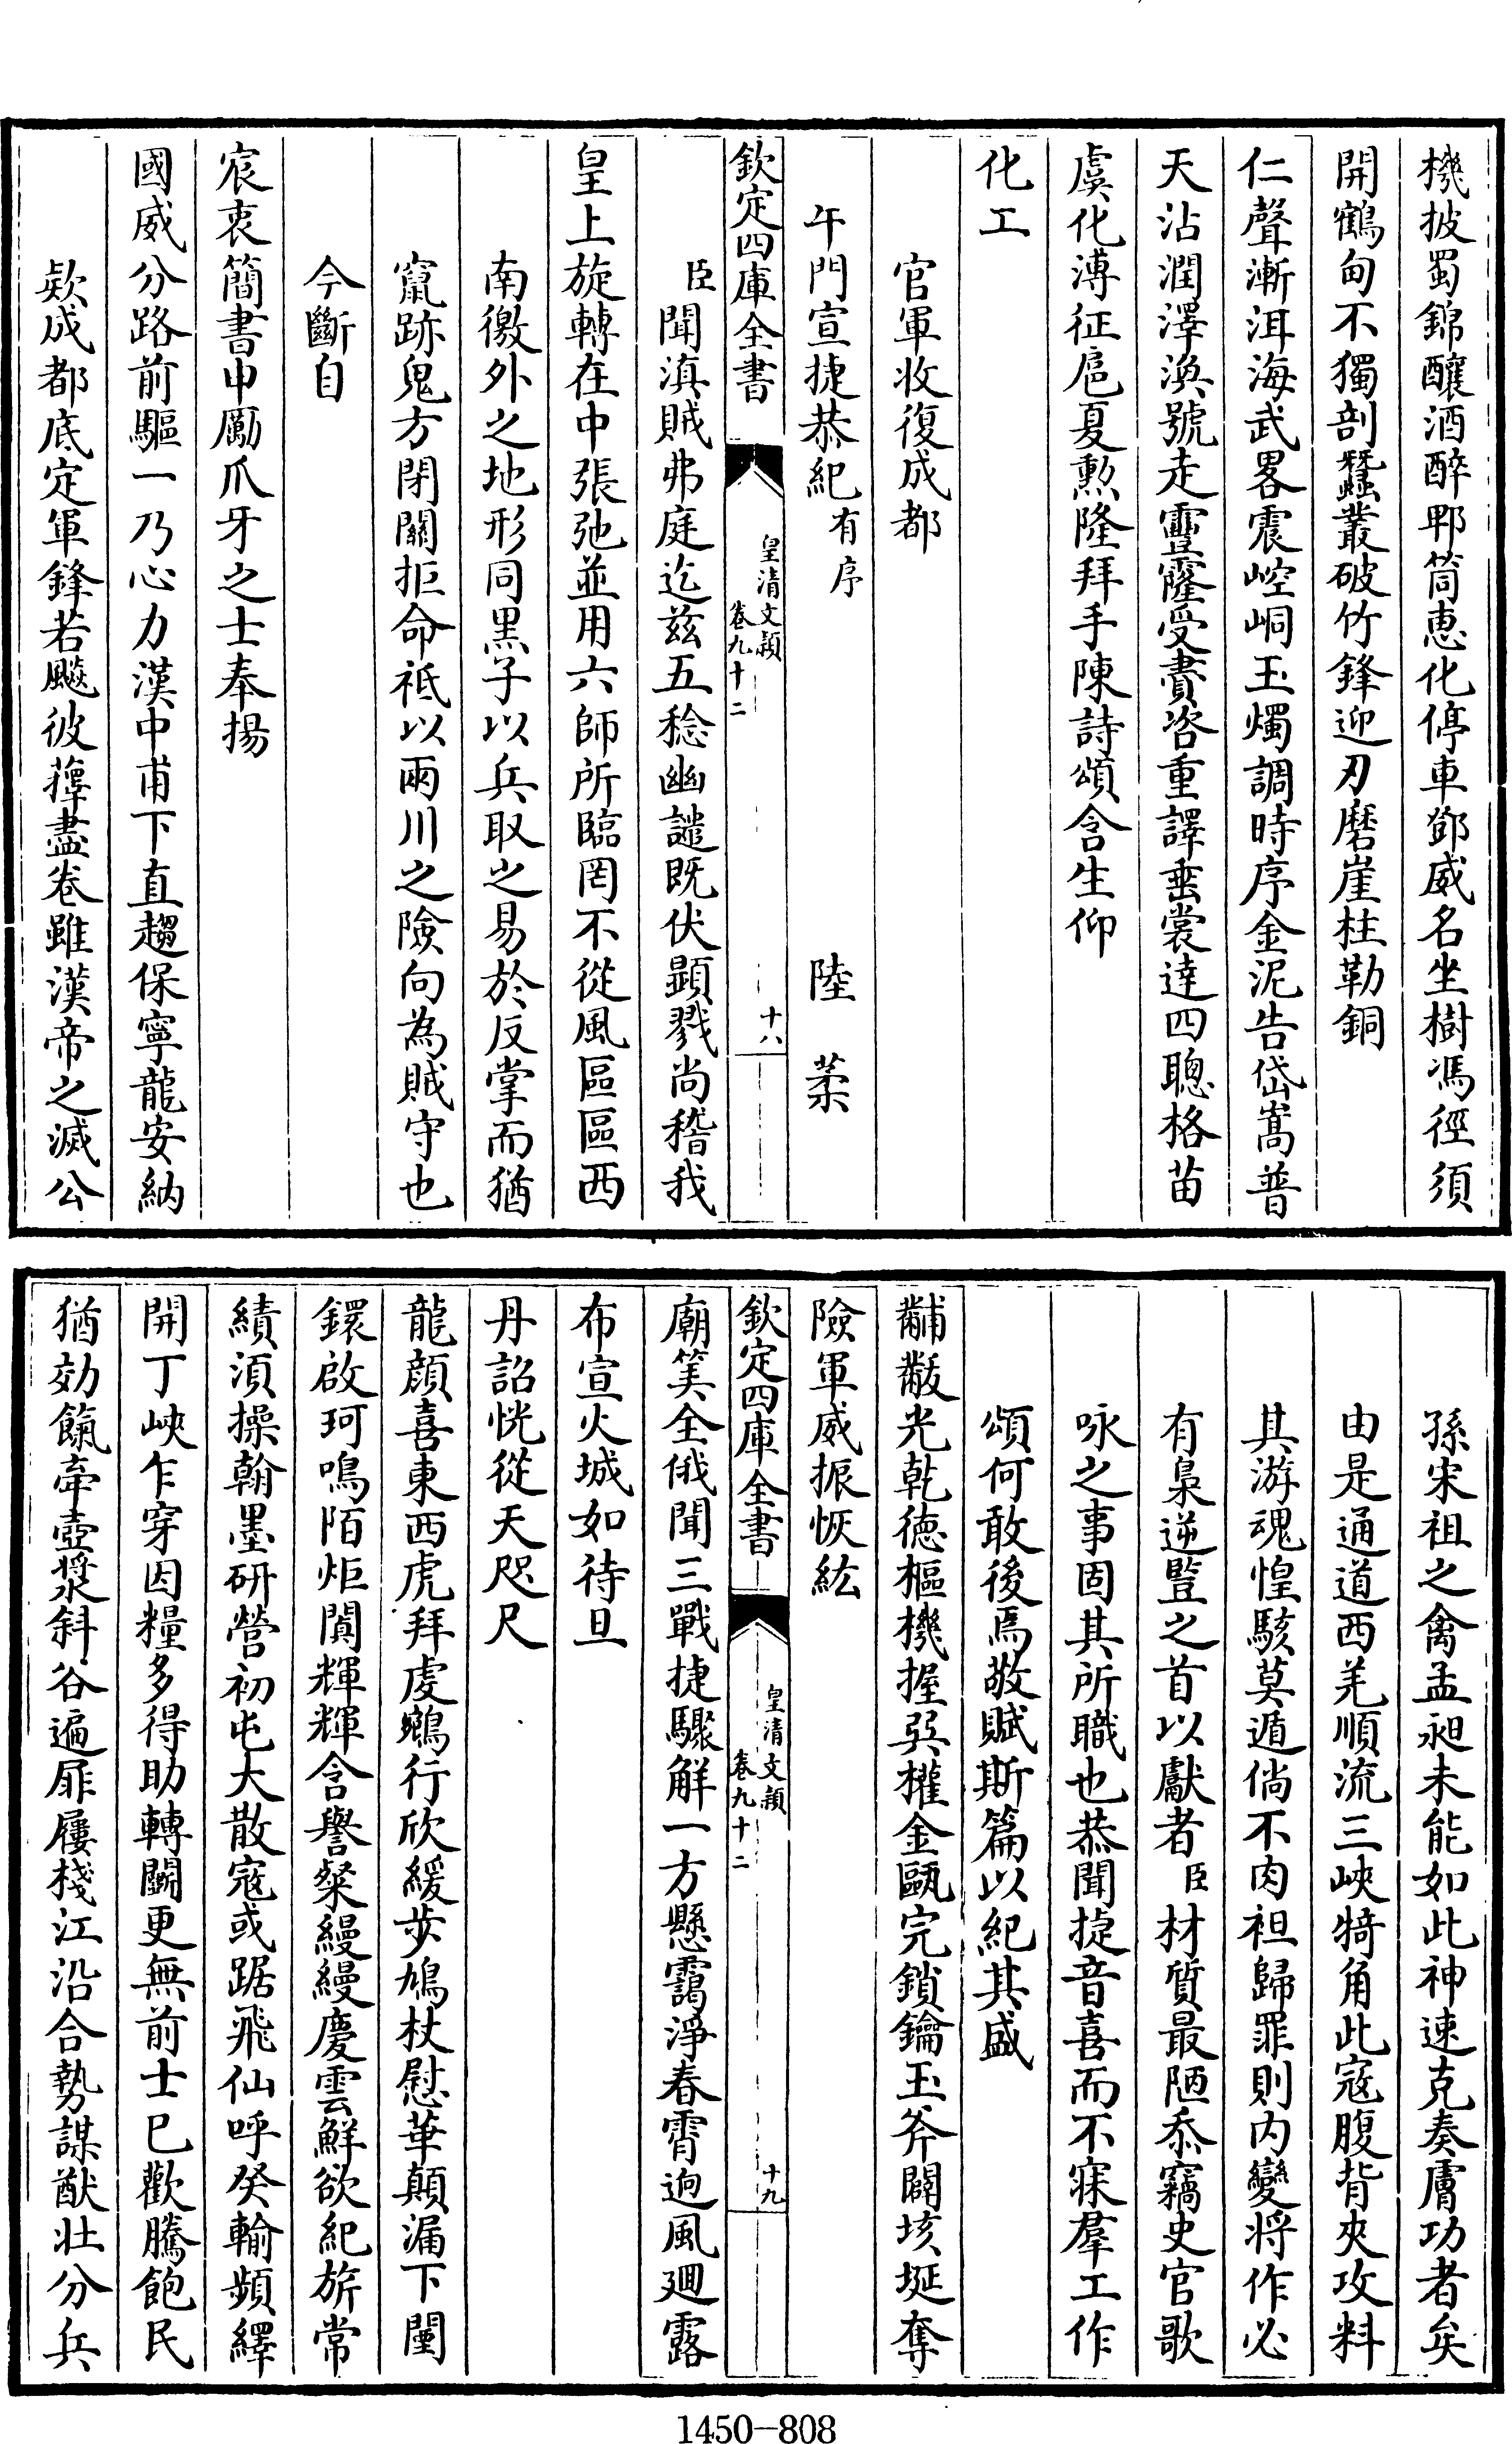 機披蜀錦釀酒醉郫筒惠化停車鄧威名坐樹馮徑須
開鶴甸不獨剖蠶叢破竹鋒迎刃磨崖柱勒銅
仁聲漸洱海武畧震崆峒玉燭調時序金泥告岱嵩普
天沾潤澤渙號走靈霳受賚咨重譯垂裳達四聰格苗
虞化溥征扈夏勲隆拜手陳詩頌含生仰
化工
官軍收復成都
午門宣捷恭紀有序 陸 葇
欽定四庫全書 皇清文穎 卷九十二 十八
臣聞滇賊弗庭迄兹五稔幽譴既伏顯戮尚稽我
皇上旋轉在中張弛並用六師所臨罔不從風區區西
南徼外之地形同黑子以兵取之易於反掌而猶
竄跡鬼方閉關拒命祗以兩川之險向為賊守也
今斷自
宸衷簡書申勵爪牙之士奉揚
國威分路前驅一乃心力漢中甫下直趨保寧龍安納
欵成都底定軍鋒若飈彼蘀盡卷雖漢帝之滅公
孫宋祖之禽孟昶未能如此神速克奏膚功者矣
由是通道西羌順流三峽犄角此寇腹背夾攻料
其游魂惶駭莫遁倘不肉袒歸罪則内變将作必
有梟逆豎之首以獻者臣材質最陋忝竊史官歌
咏之事固其所職也恭聞捷音喜而不寐羣工作
頌何敢後焉敬賦斯篇以紀其盛
黼黻光乾德樞機握巽權金甌完鎖鑰玉斧闢垓埏奪
險軍威振恢紘
欽定四庫全書 皇清文穎 卷九十二 十九
廟筭全俄聞三戰捷驟解一方懸靄淨春霄逈風廻露
布宣火城如待旦
丹詔恍從天咫尺
龍顔喜東西虎拜虔鵷行欣緩步鳩杖慰華顛漏下闉
鐶啟珂鳴陌炬闐輝輝含譽粲縵縵慶雲鮮欲紀旂常
績湏操翰墨研營初屯大散寇或踞飛仙呼癸輸頻繹
開丁峽乍穿因糧多得助轉鬬更無前士已歡騰飽民
猶効餼牽壺漿斜谷遍屝屨棧江沿合勢謀猷壮分兵
1450-808